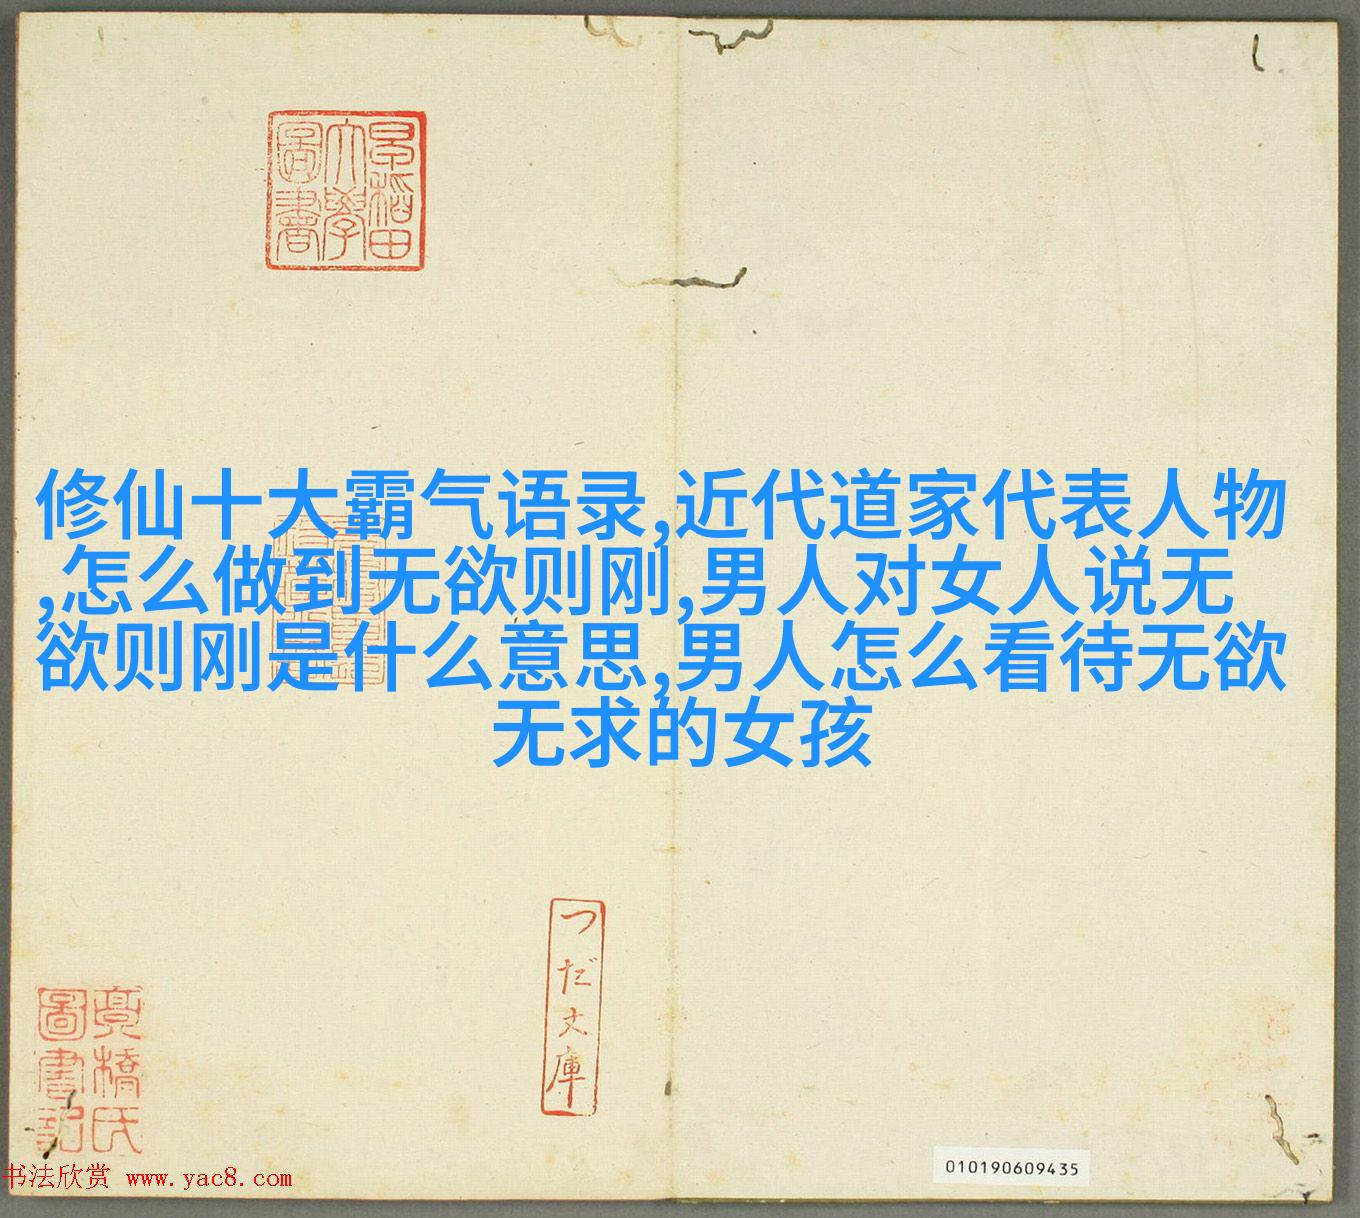 早稻田
大學
圖書
修仙十大霸气语录,近代道家代表人物
,怎么做到无欲则刚,男人对女人说无
欲则刚是什么意思,男人怎么看待无欲
无求的女孩
つだ文庫
橋氏
圖書記
010190609435
书法欣赏 www.yac8.com